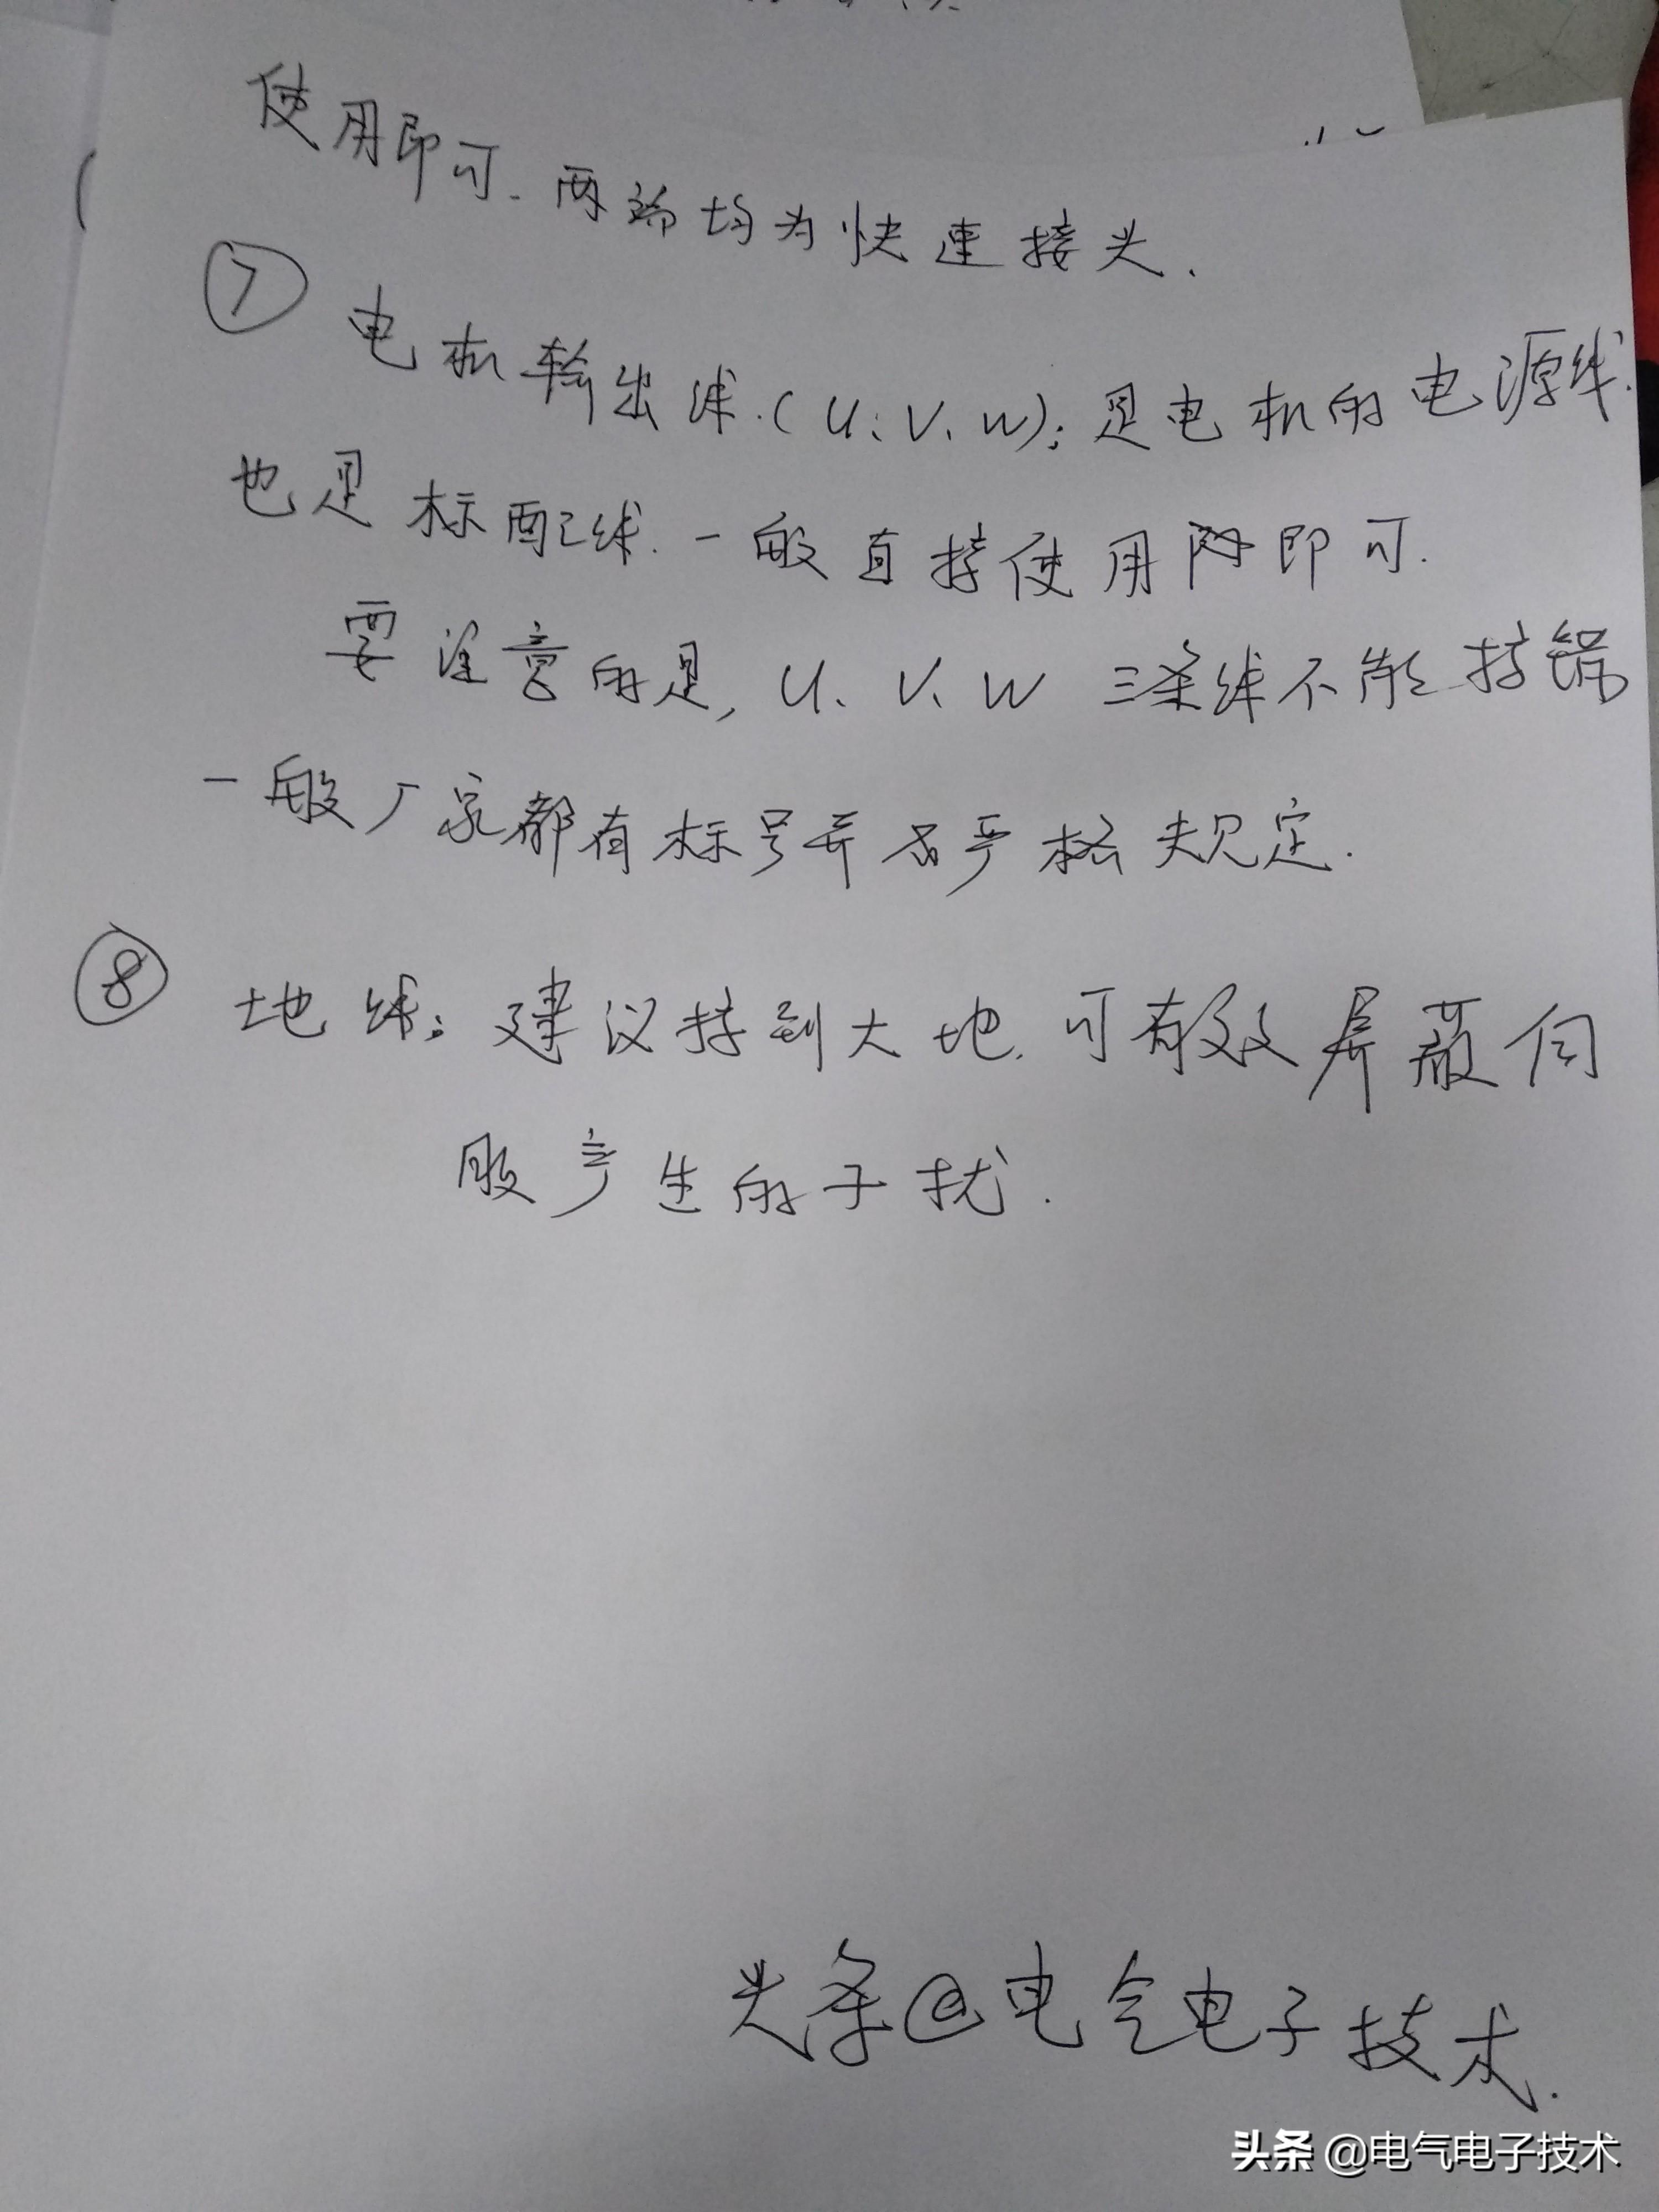 使用即可.两端均为快速接头.
⑦ 电机输出线.(U、V、W):是电机的电源线.
也是标配线.一般直接使用即可.
要注意的是,U、V、W三条线不能接错
一般厂家都有标号并严格规定.
⑧ 地线:建议接到大地.可有效屏蔽伺
服产生的干扰.
头条@电气电子技术.
头条 @电气电子技术